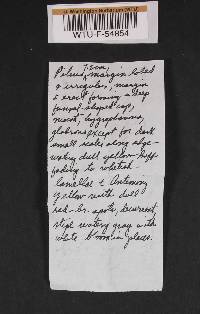 U. Washington Herbarium (WTU)
WTU-F-54854
7 cm,
Pileus, margin lobed
& irregular, margin
& erect forming a deep
funnel-shaped cap,
moist, hygrophanous,
glabrous except for dark
small scales along edge
dull yellow-buff
fading to whitish
Lamellae & Antimony
yellow with dull
red-br. spots, decurrent,
stipe watery gray with
white bloom in places.